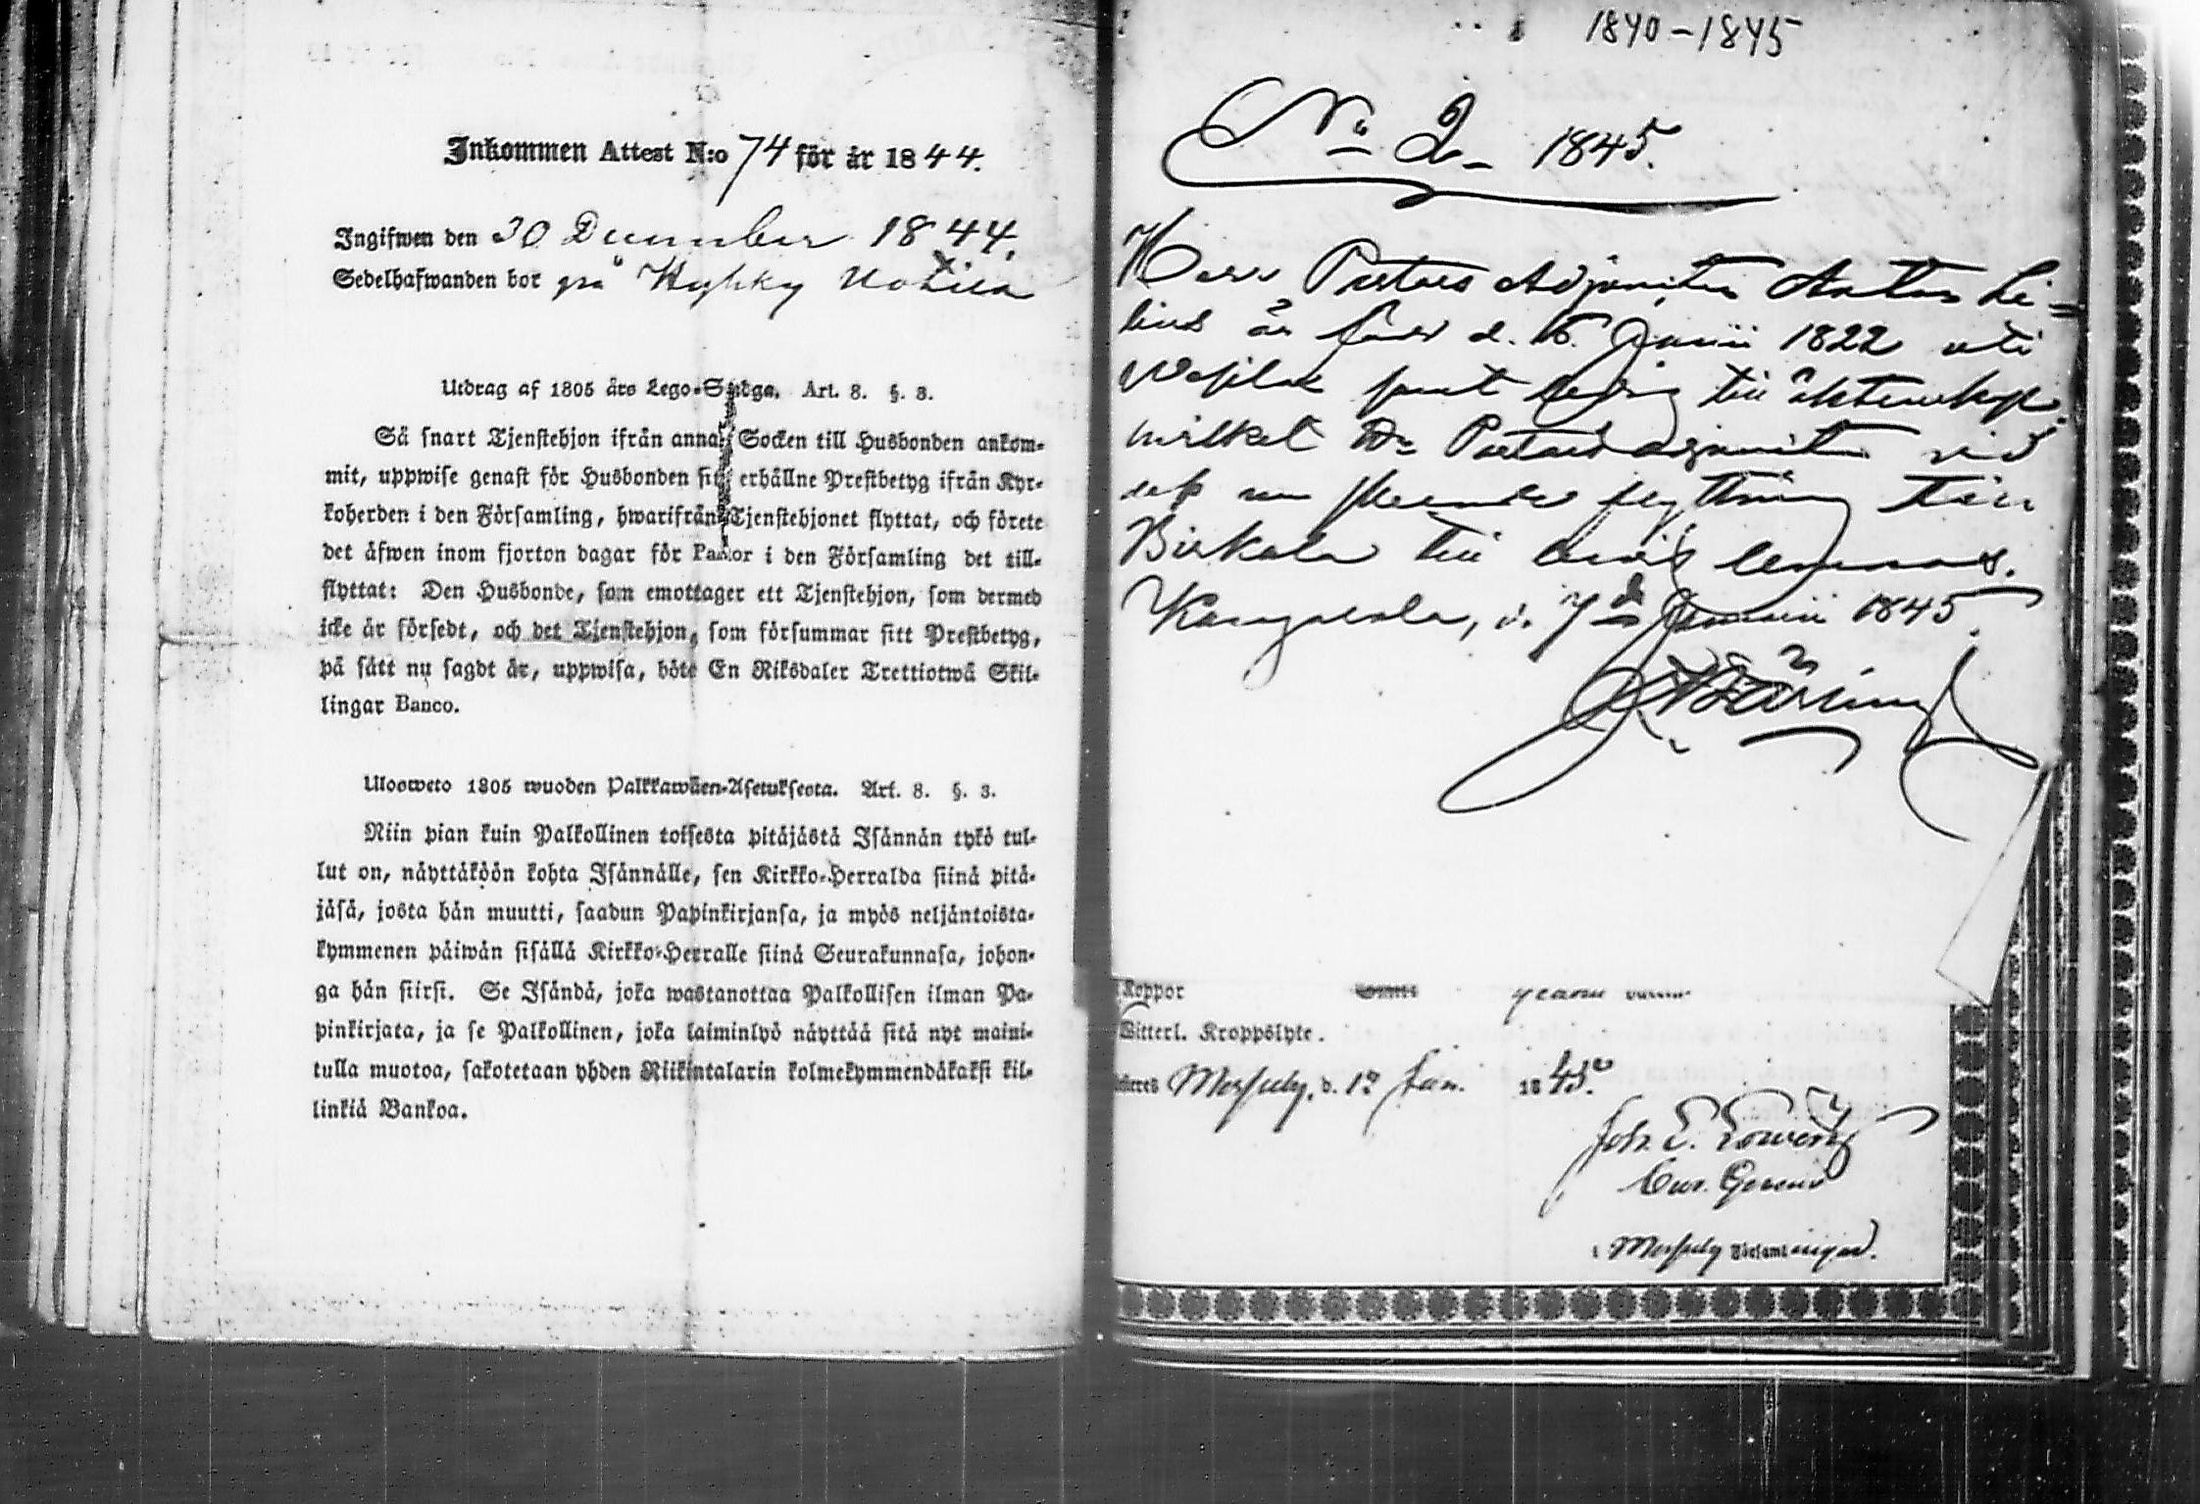 Inkommen Attest N:o 74 för år 1844.
Ingifwen den 30 December 1844.
Sedelhafwanden bor på Kyhky Uotila
Utdrag af 1805 års Lego-Stadga. Art. 8. §. 3.
Så snart Tjenstehjon ifrån annan Socken till Husbonden ankom-
mit, uppwise genast för Husbonden sitt erhållne Prestbetyg ifrån Kyr-
koherden i den Församling, hwarifrån Tjenstehjonet flyttat, och förete
det åfwen inom fjorton dagar för Pastor i den Församling det till-
flyttat: Den Husbonde, som emottager ett Tjenstehjon, som dermed
icke är försedt, och det Tjenstehjon, som försummar sitt Prestbetyg,
på sått nu sagdt är, uppwisa, böte En Riksdaler Trettiotwå Skil-
lingar Banco.
Uloosweto 1805 wuoden Palkkawäen-Asetuksesta. Art. 8. §. 3.
Niin pian kuin Palkollinen toisesta pitäjästä Isännän tykö tul-
lut on, näyttäköön kohta Isännälle, sen Kirkko-Herralda siinä pitä-
jäsä, josta hän muutti, saadun Papinkirjansa, ja myös neljäntoista-
kymmenen päiwän sisällä Kirkko-Herralle siinä Seurakunnasa, johon-
ga hän siirsi. Se Isändä, joka wastanottaa Palkollisen ilman Pa-
pinkirjata, ja se Palkollinen, joka laiminlyö näyttää sitä nyt maini-
tulla muotoa, sakotetaan yhden Riikintalarin kolmekymmendäkaksi kil-
linkiä Bankoa.
1840-1845
No 2. 1845.
Herr Pastors Adjuncten Anton Li-
lius är född d. 6 Junii 1822 uti
samt ledig till äktenskap,
hvilket Hr Pastorsadjuncten vid
dess nu skeende flyttning till
Birkala till bevis lemnas.
Kangasala, d. 7de Januarii 1845.
Koppor
Witterl. Kroppslyte.
d. 12 Jan. 1845
Joh. E.
Cur. Gerens
i Församlingar.